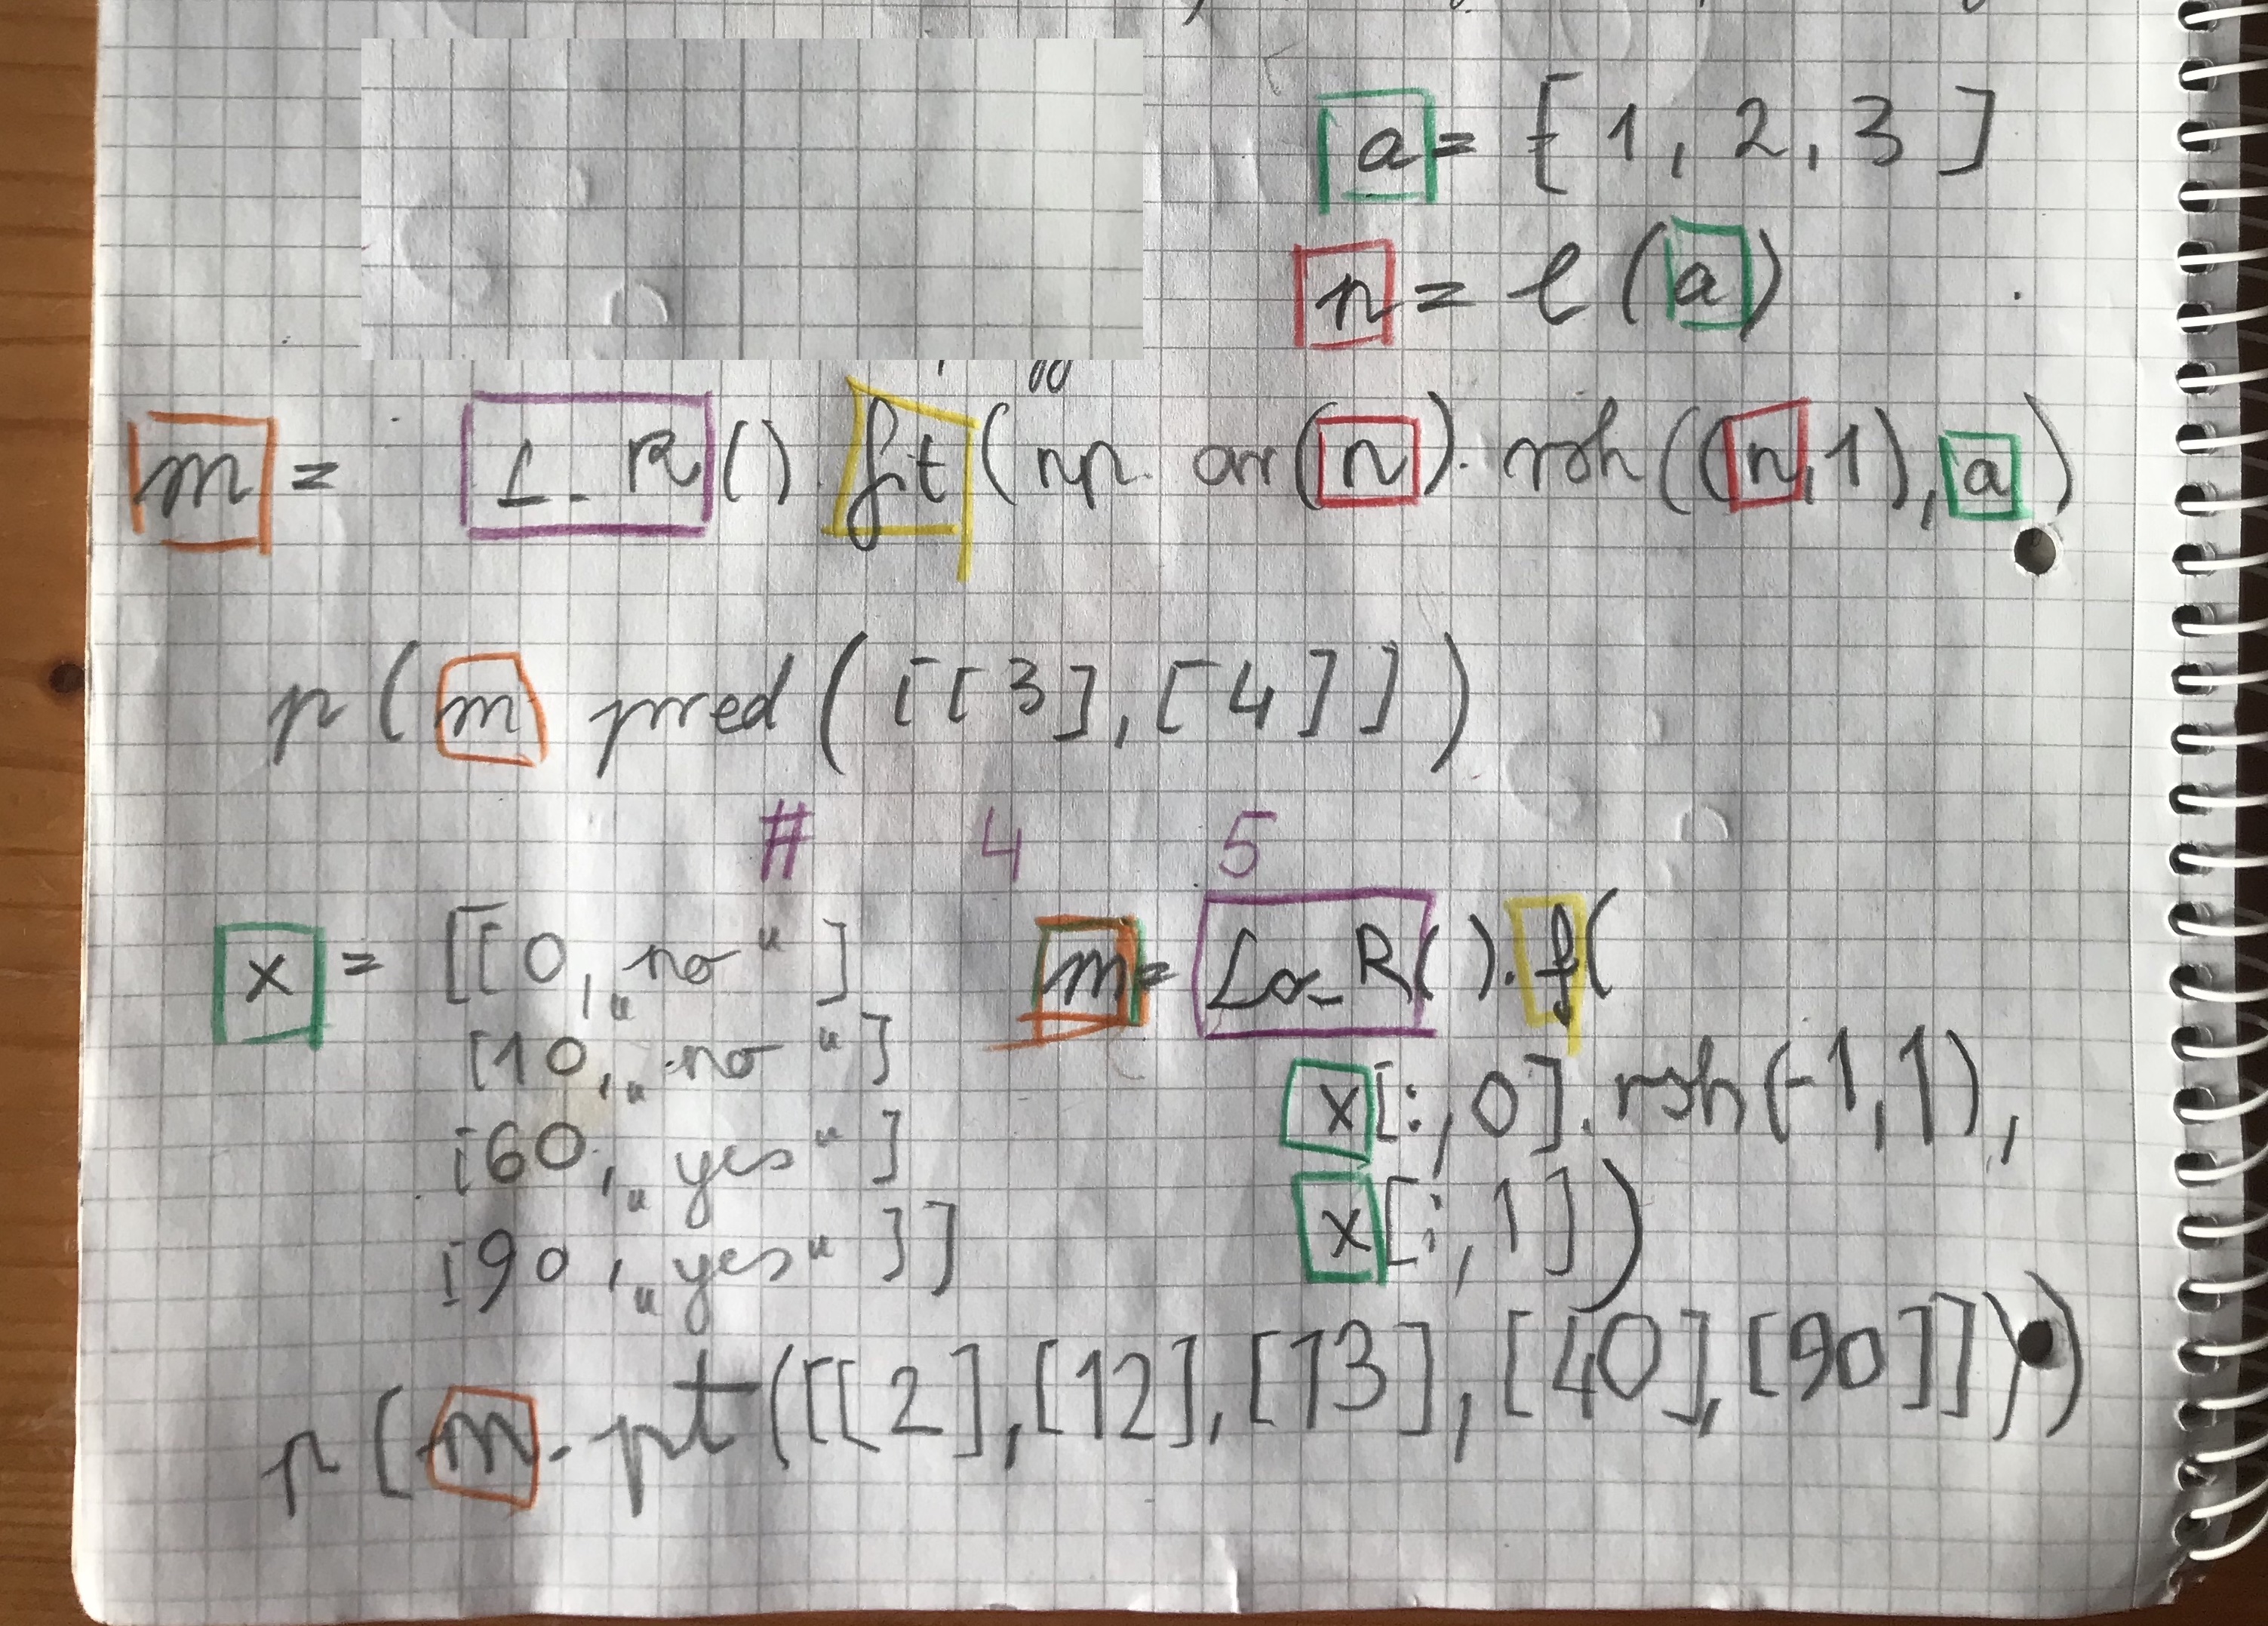 a = [ 1, 2, 3 ]
n = l (a)
m = L_R(). fit (np. arr(n). rsh((n,1),a)
p (m pred ([[3],[4]])
# 4 5
x = [[0, „no“]
[10, „no“]
[60, „yes“]
[90, „yes“]]
m= Lo_R().f(
x[:,0]. rsh(-1,1),
x[:,1])
p(m.pt([[2],[12],[13],[40],[90]]))